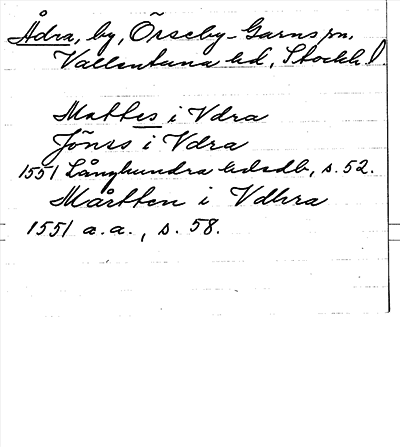 Ådra, by, Össeby-Garns sn,
Vallentuna hd, Stockh. l.
Mattes i Vdra
Jönss i Vdra
1551 Långhundra hdsdb, s. 52.
Mårtten i Vdhra
1551 a.a., s. 58.